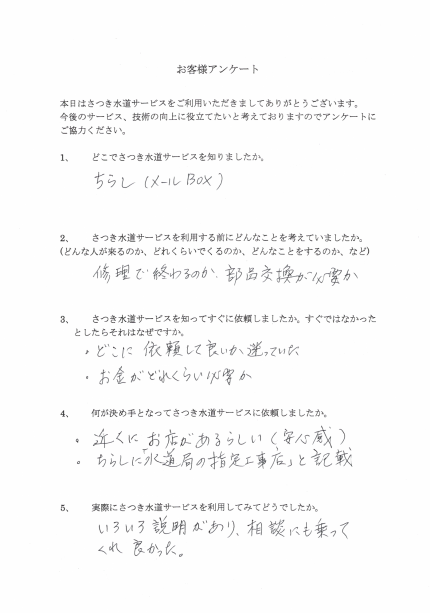 お客様アンケート
本日はさつき水道サービスをご利用いただきましてありがとうございます。
今後のサービス、技術の向上に役立てたいと考えておりますのでアンケートに
ご協力ください。
1、 どこでさつき水道サービスを知りましたか。
ちらし（メールBOX）
2、 さつき水道サービスを利用する前にどんなことを考えていましたか。
(どんな人が来るのか、どれくらいでくるのか、どんなことをするのか、など)
修理で終わるのか、部品交換が必要か
3、 さつき水道サービスを知ってすぐに依頼しましたか。すぐではなかった
としたらそれはなぜですか。
・どこに依頼して良いか迷っていた
・お金がどれくらい必要か
4、 何が決め手となってさつき水道サービスに依頼しましたか。
・近くにお店があるらしい（安心感）
・ちらしに「水道局の指定工事店」と記載
5、 実際にさつき水道サービスを利用してみてどうでしたか。
いろいろ説明があり、相談にも乗って
くれ良かった。